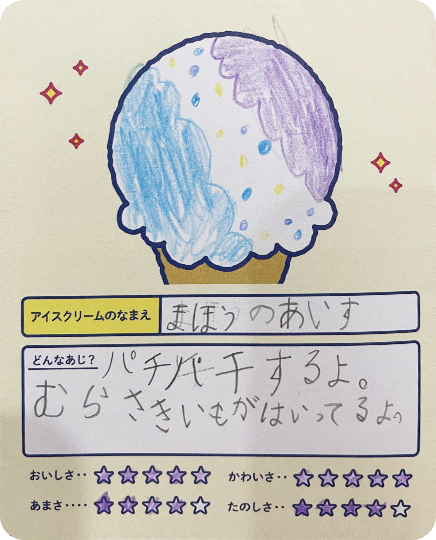 アイスクリームのなまえ まほうのあいす
どんなあじ? パチパチするよ。
むらさきいもがはいってるよ。
おいしさ‥ ☆☆☆☆☆ かわいさ‥ ☆☆☆☆☆
あまさ‥‥ ☆☆☆☆☆ たのしさ‥ ☆☆☆☆☆